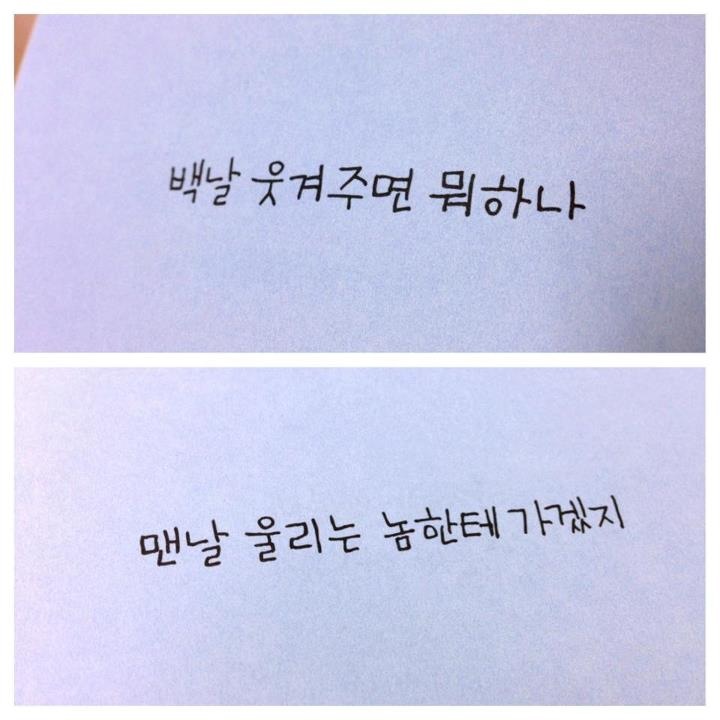 백날 웃겨주면 뭐하나
맨날 울리는 놈한테 가겠지